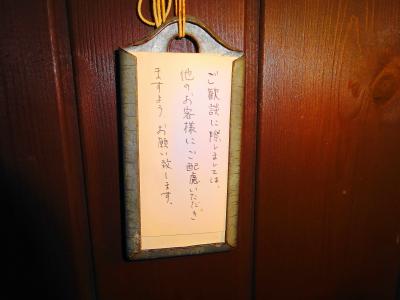 ご歓談に際しましては、
他のお客様にご配慮いただき
ますよう お願い致します。